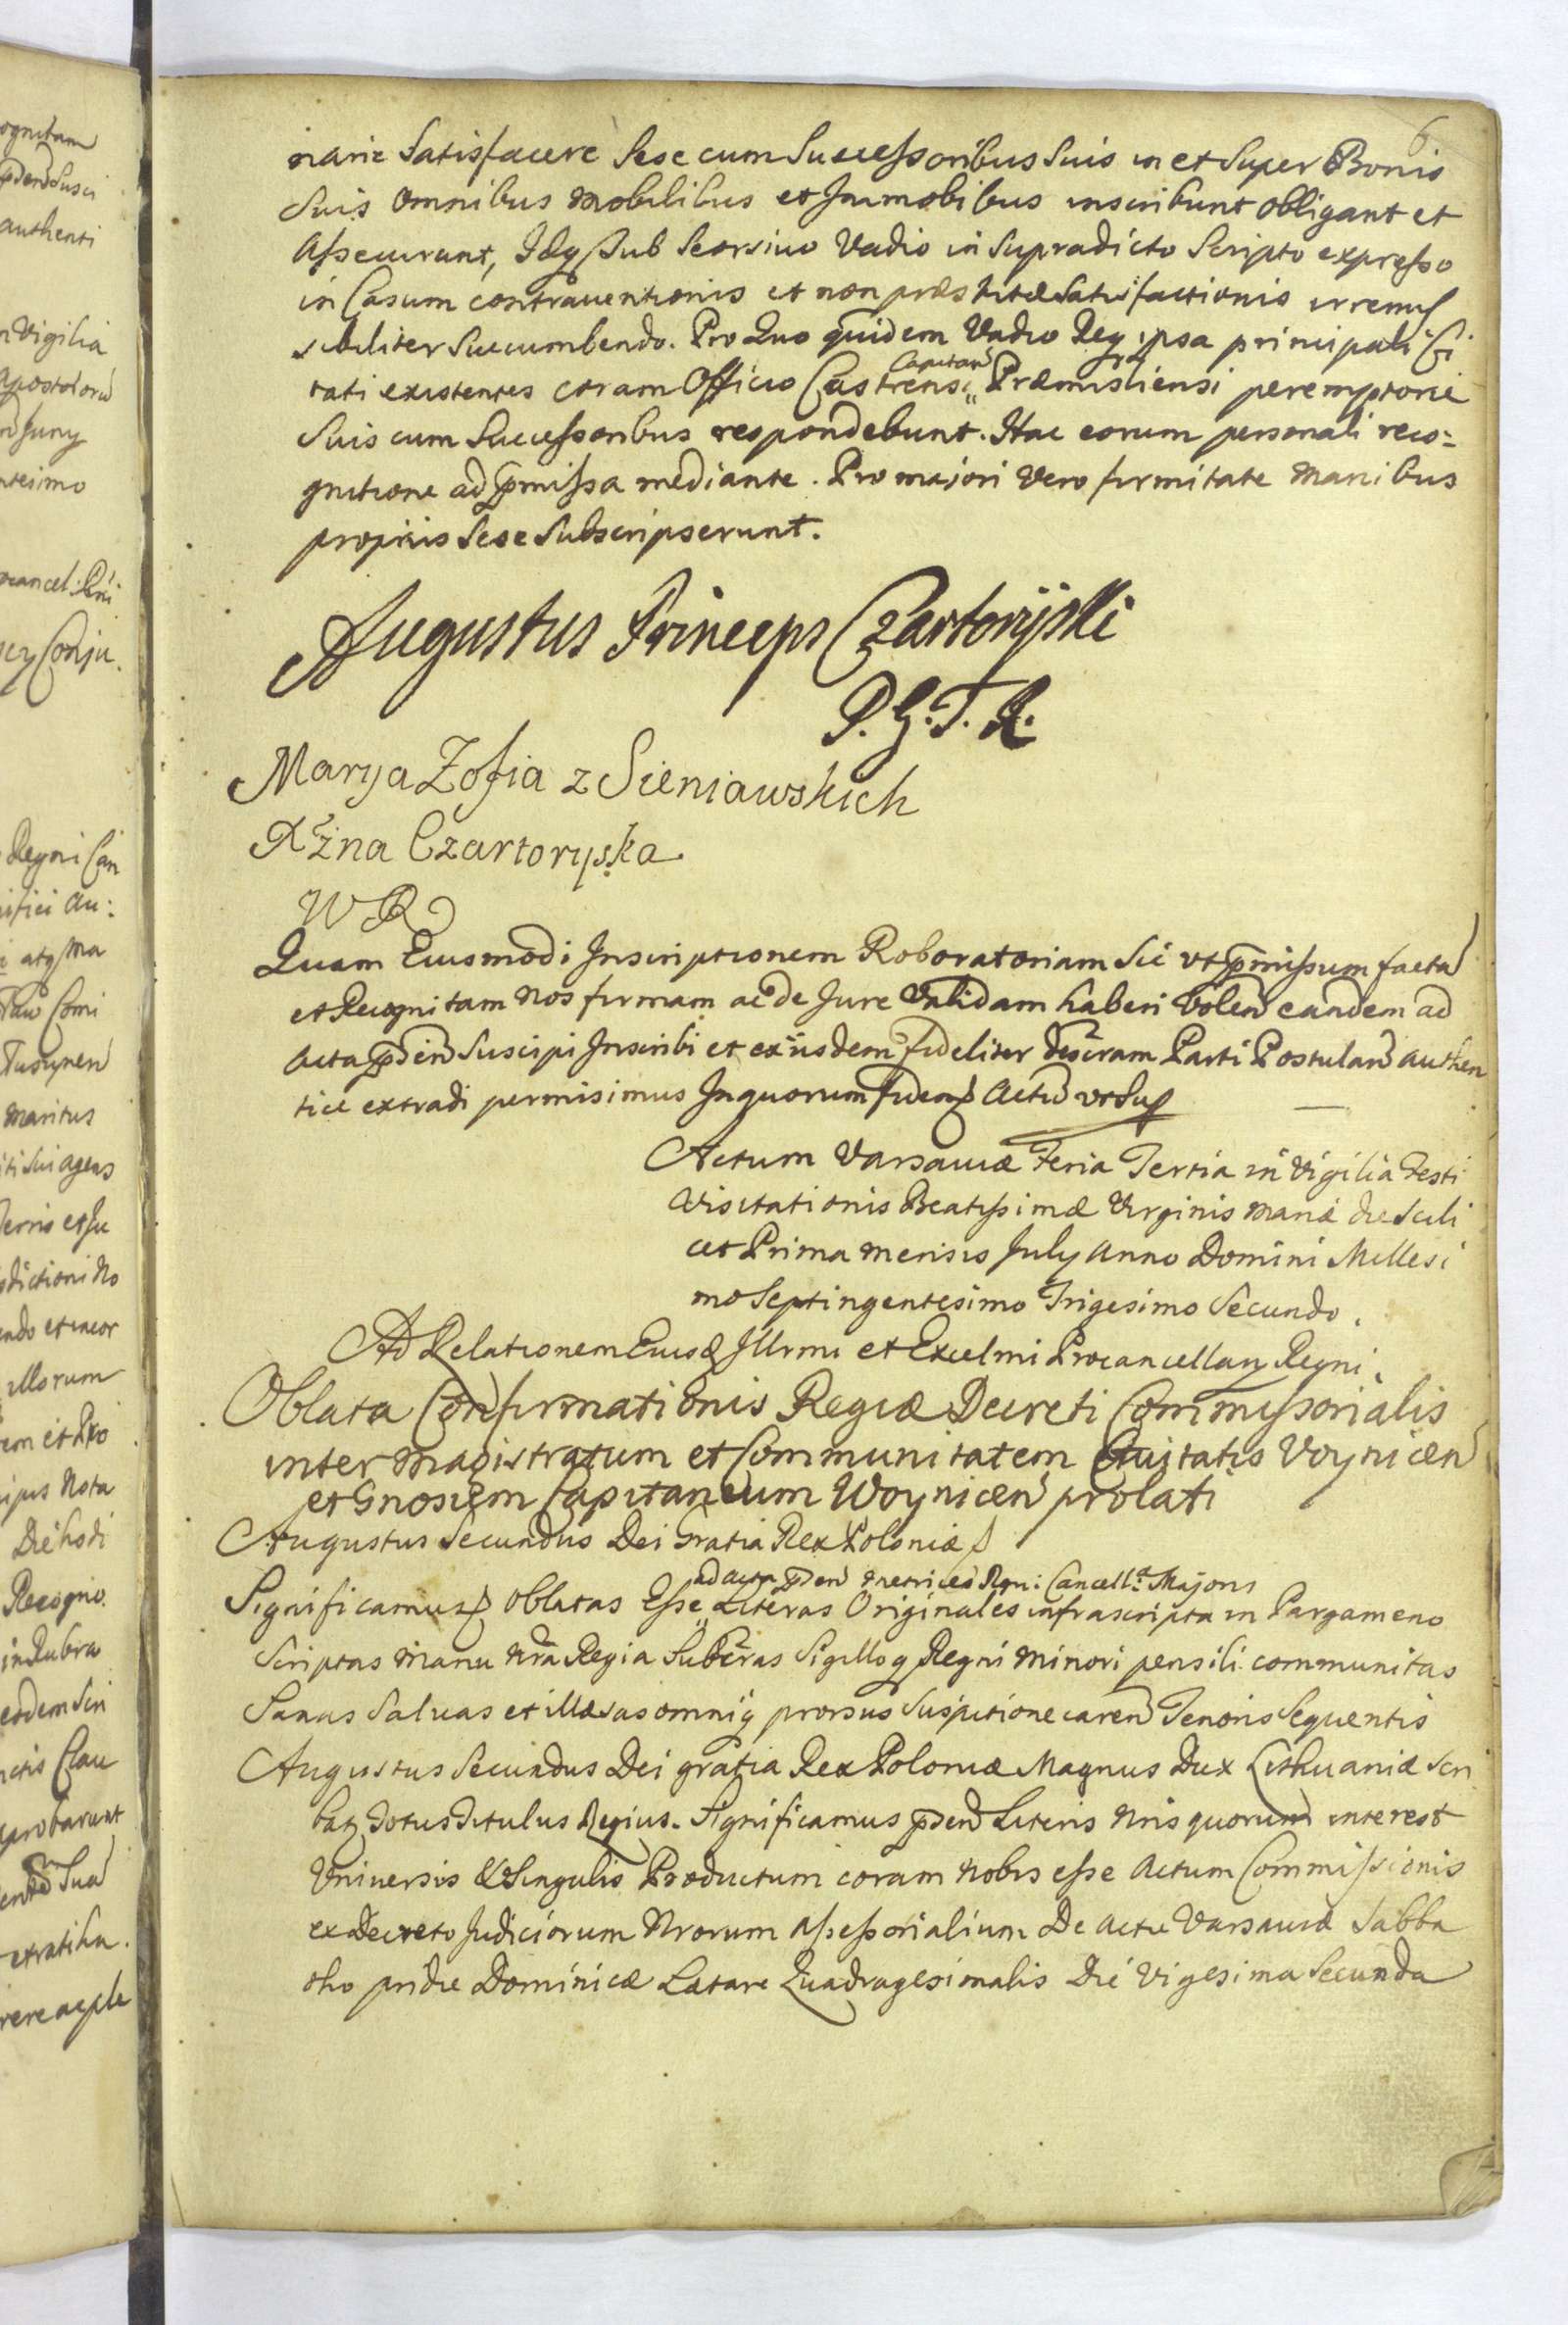 6
narie Satisfacere Sese cum Successoribus Suis in et Super Bonis
Suis Omnibus Mobilibus et Immobibus inscribunt obligant et
Assecurant, Idq sub Seorsivo Vadio in Supradicto Scripto expresso
in Casum contraventionis et non præstitæ Satisfactionis irremis
sibiliter Succumbendo. Pro Quo quidem Vadio Req ipsa principali Ci
tati existentes coram Officio Castrensi Capitan Præmisliensi peremptorie
Suis cum Successoribus respondebunt. Hac eorum personali reco:
gnitione ad pmissa mediante. Pro majori Vero firmitate Manibus
propriis Sese Subscripserunt.
Augustus Princeps Czartoryski
P. G. T. R.
Marya Zofia z Sieniawskich
Xżna Czartoryska
W R
Quam Eiusmodi Inscriptionem Roboratoriam Sic vt pmissum facta
et Recognitam Nos firmam ac de Jure Validam haberi Volen eandem ad
Acta pden Suscipi Inscribi et ex iisdem fideliter descram Parti Postulan authen
tice extradi permisimus In quorum fidem Actu vt Sup
Actum Varsaviæ Feria Tertia in Vigilia Festi
Visitationis Beatissimæ Virginis Mariæ die Scili
cet Prima Mensis July Anno Domini Millesi
mo Septingentesimo Trigesimo Secundo.
Ad Relationem Eiusd Illrmi et Excelmi Procancellary Regni
Oblata Confirmationis Regiæ Decreti Commissorialis
inter Magistratum et Communitatem Civitatis Voynicen
et Gnosum Capitaneum Woynicen prolati
Augustus Secundus Dei Gratia Rex Poloniæ
ad acta pden Metrices Regni Cancell. Majoris
Significamus Oblatas Esse Literas Originales infrascripta in Pargameno
Scriptas Manu Nra Regia Subcras Sigilloq Regni Minori pensili communitas
Sanas Salvas et illæsas omniq prorsus Suspicione caren Tenoris Sequentis
Augustus Secundus Dei gratia Rex Poloniæ Magnus Dux Lithuaniæ Scri
bat totus titulus Regius. Significamus pden Literis Nris quorum interest
Universis & Singulis Productum coram Nobis esse Actum Commissionis
ex Decreto Judiciorum Nrorum Assessorialium De Actu Varsaviæ Sabba
tho pridie Dominicæ Lætare Quadragesimalis Die Vigesima Secunda